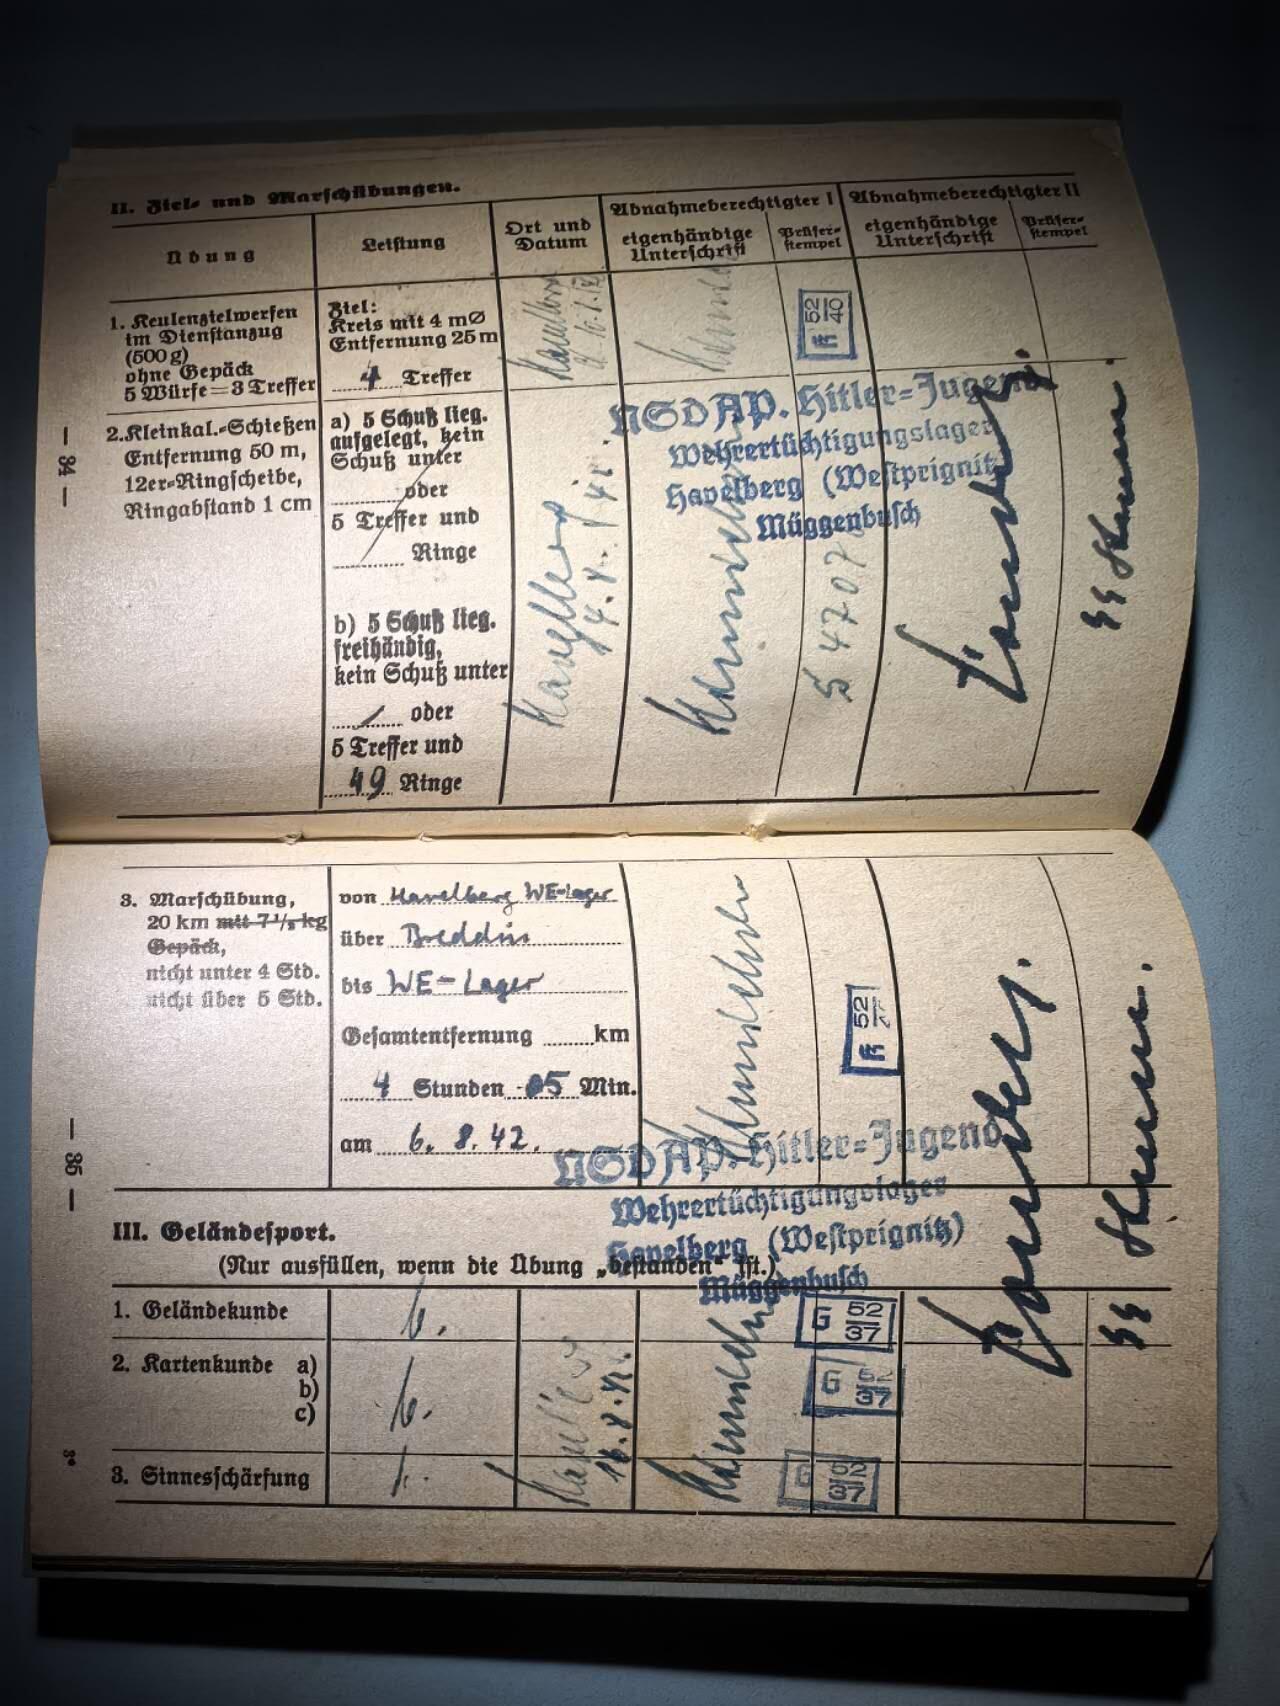 II. Ziel- und Marschübungen.
Übung
Leistung
Ort und
Datum
Abnahmeberechtigter I
eigenhändige
Unterschrift
Prüfer-
stempel
Abnahmeberechtigter II
eigenhändige
Unterschrift
Prüfer-
stempel
1. Keulenzielwerfen
im Dienstanzug
(500 g)
ohne Gepäck
5 Würfe=3 Treffer
Ziel:
Kreis mit 4 mØ
Entfernung 25 m
4 Treffer
R 52
40
2. Kleinkal.-Schießen
Entfernung 50 m,
12er-Ringscheibe,
Ringabstand 1 cm
a) 5 Schuß lieg.
aufgelegt, kein
Schuß unter
oder
5 Treffer und
Ringe
b) 5 Schuß lieg.
freihändig,
kein Schuß unter
oder
5 Treffer und
49 Ringe
Havelberg
NSDAP. Hitler-Jugend
Wehrertüchtigungslager
Havelberg (Westprignitz
Müggenbusch
5 4707
— 34 —
3. Marschübung,
20 km mit 7½ kg
Gepäck,
nicht unter 4 Std.
nicht über 5 Std.
von Havelberg WE-Lager
über Breddin
bis WE-Lager
Gesamtentfernung km
4 Stunden 05 Min.
am 6. 8. 42.
R 52
NSDAP. Hitler-Jugend
Wehrertüchtigungslager
Havelberg (Westprignitz)
Müggenbusch
III. Geländesport.
(Nur ausfüllen, wenn die Übung „bestanden“ ist.)
1. Geländekunde
G 52
37
2. Kartenkunde a)
b)
c)
G 52
37
3. Sinnesschärfung
G 52
37
— 35 —
3*